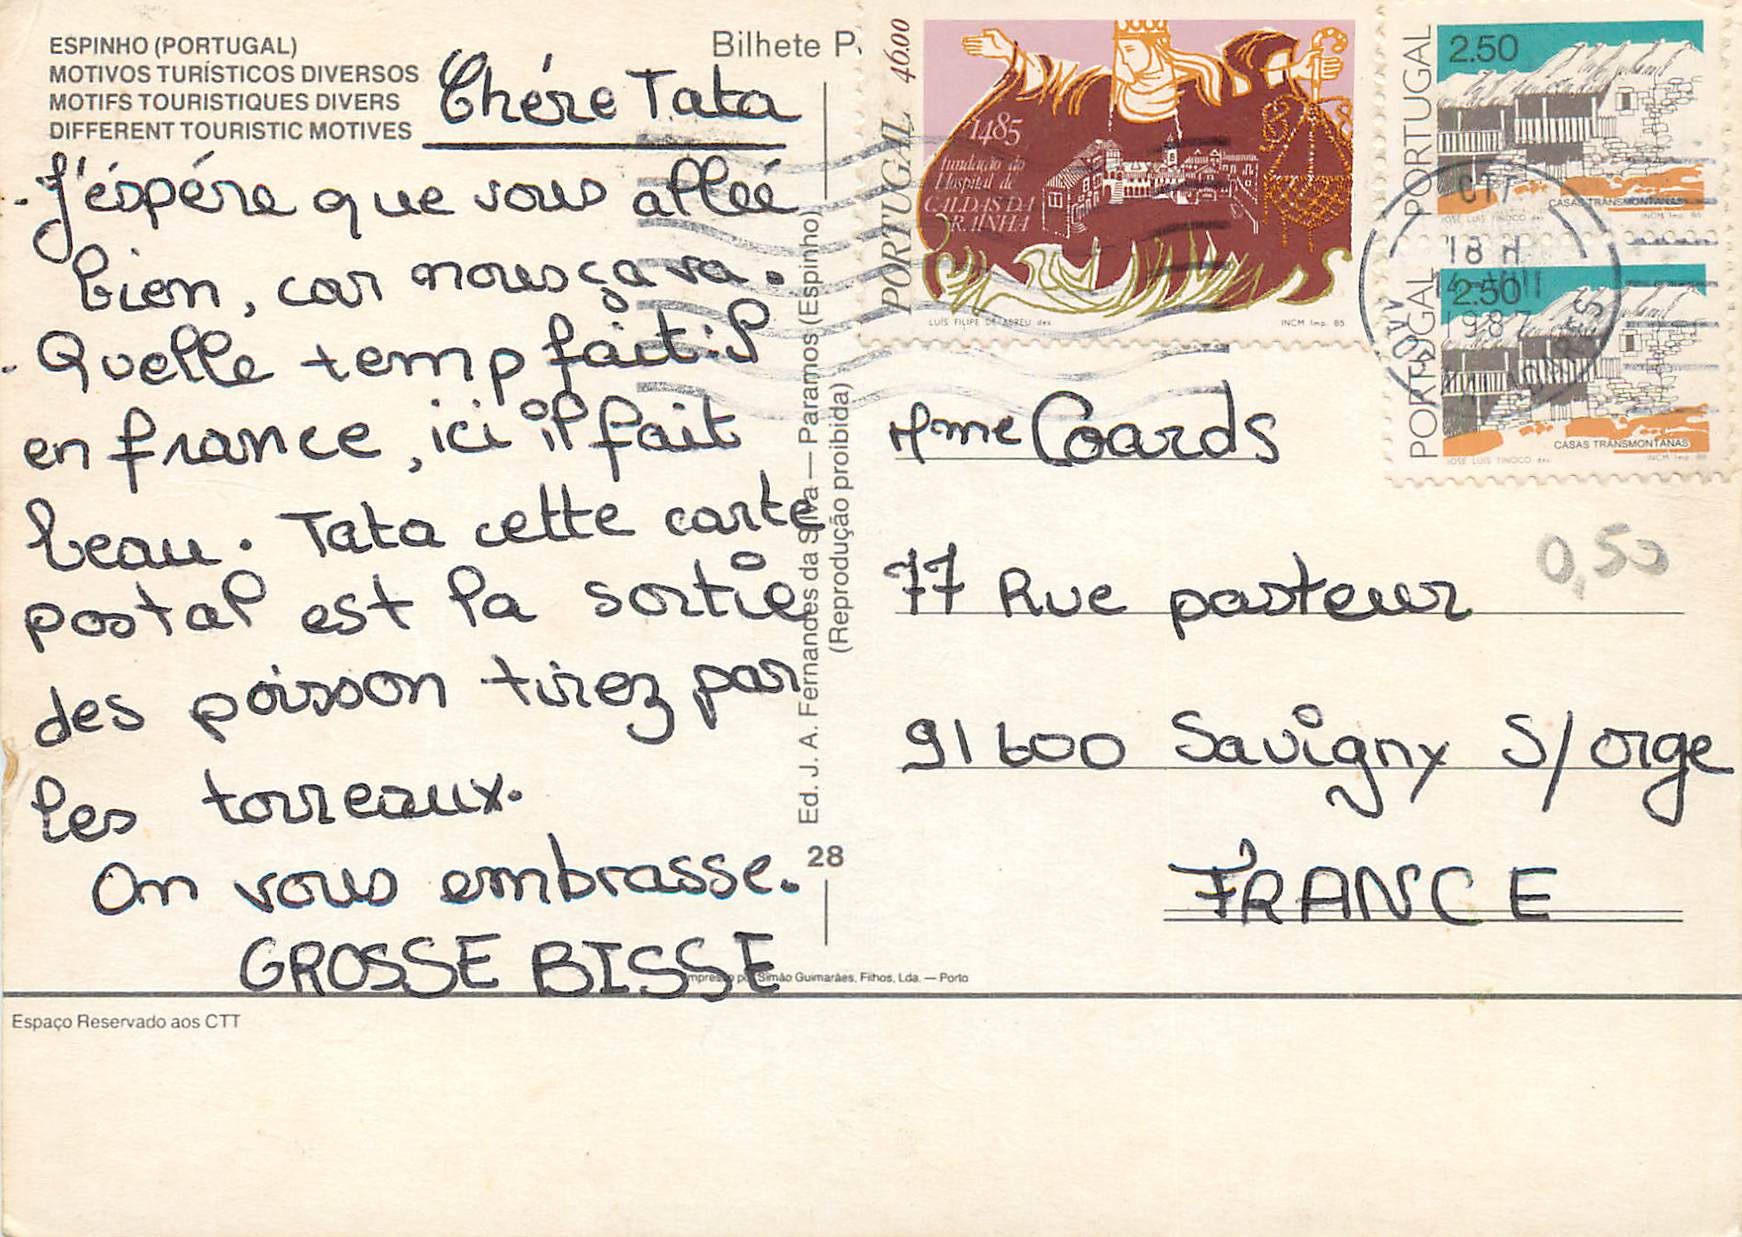 ESPINHO (PORTUGAL)
MOTIVOS TURÍSTICOS DIVERSOS
MOTIFS TOURISTIQUES DIVERS
DIFFERENT TOURISTIC MOTIVES
Bilhete P
Chére Tata
- J'éspére que vous alleé
bien, car nous ça va.
- Quelle temp fait:il
en france, ici il fait
beau. Tata cette carte
postal est la sortie
des poisson tirez par
les torreaux.
On vous embrasse.
GROSSE BISSE
Ed. J. A. Fernandes da Silva — Paramos (Espinho)
(Reprodução proibida)
28
Impresso por Simão Guimarães, Filhos, Lda. — Porto
Espaço Reservado aos CTT
PORTUGAL 46.00
1485
Fundação do
Hospital de
CALDAS DA
RAINHA
LUÍS FILIPE DE ABREU des.
INCM Imp. 85
PORTUGAL
2.50
CASAS TRANSMONTANAS
JOSÉ LUÍS TINOCO des.
INCM Imp. 86
PORTUGAL
2.50
CASAS TRANSMONTANAS
JOSÉ LUÍS TINOCO des.
INCM Imp. 86
CTT
18 H
1987
Mme Coards
77 Rue pasteur
91600 Savigny S/orge
FRANCE
0,50